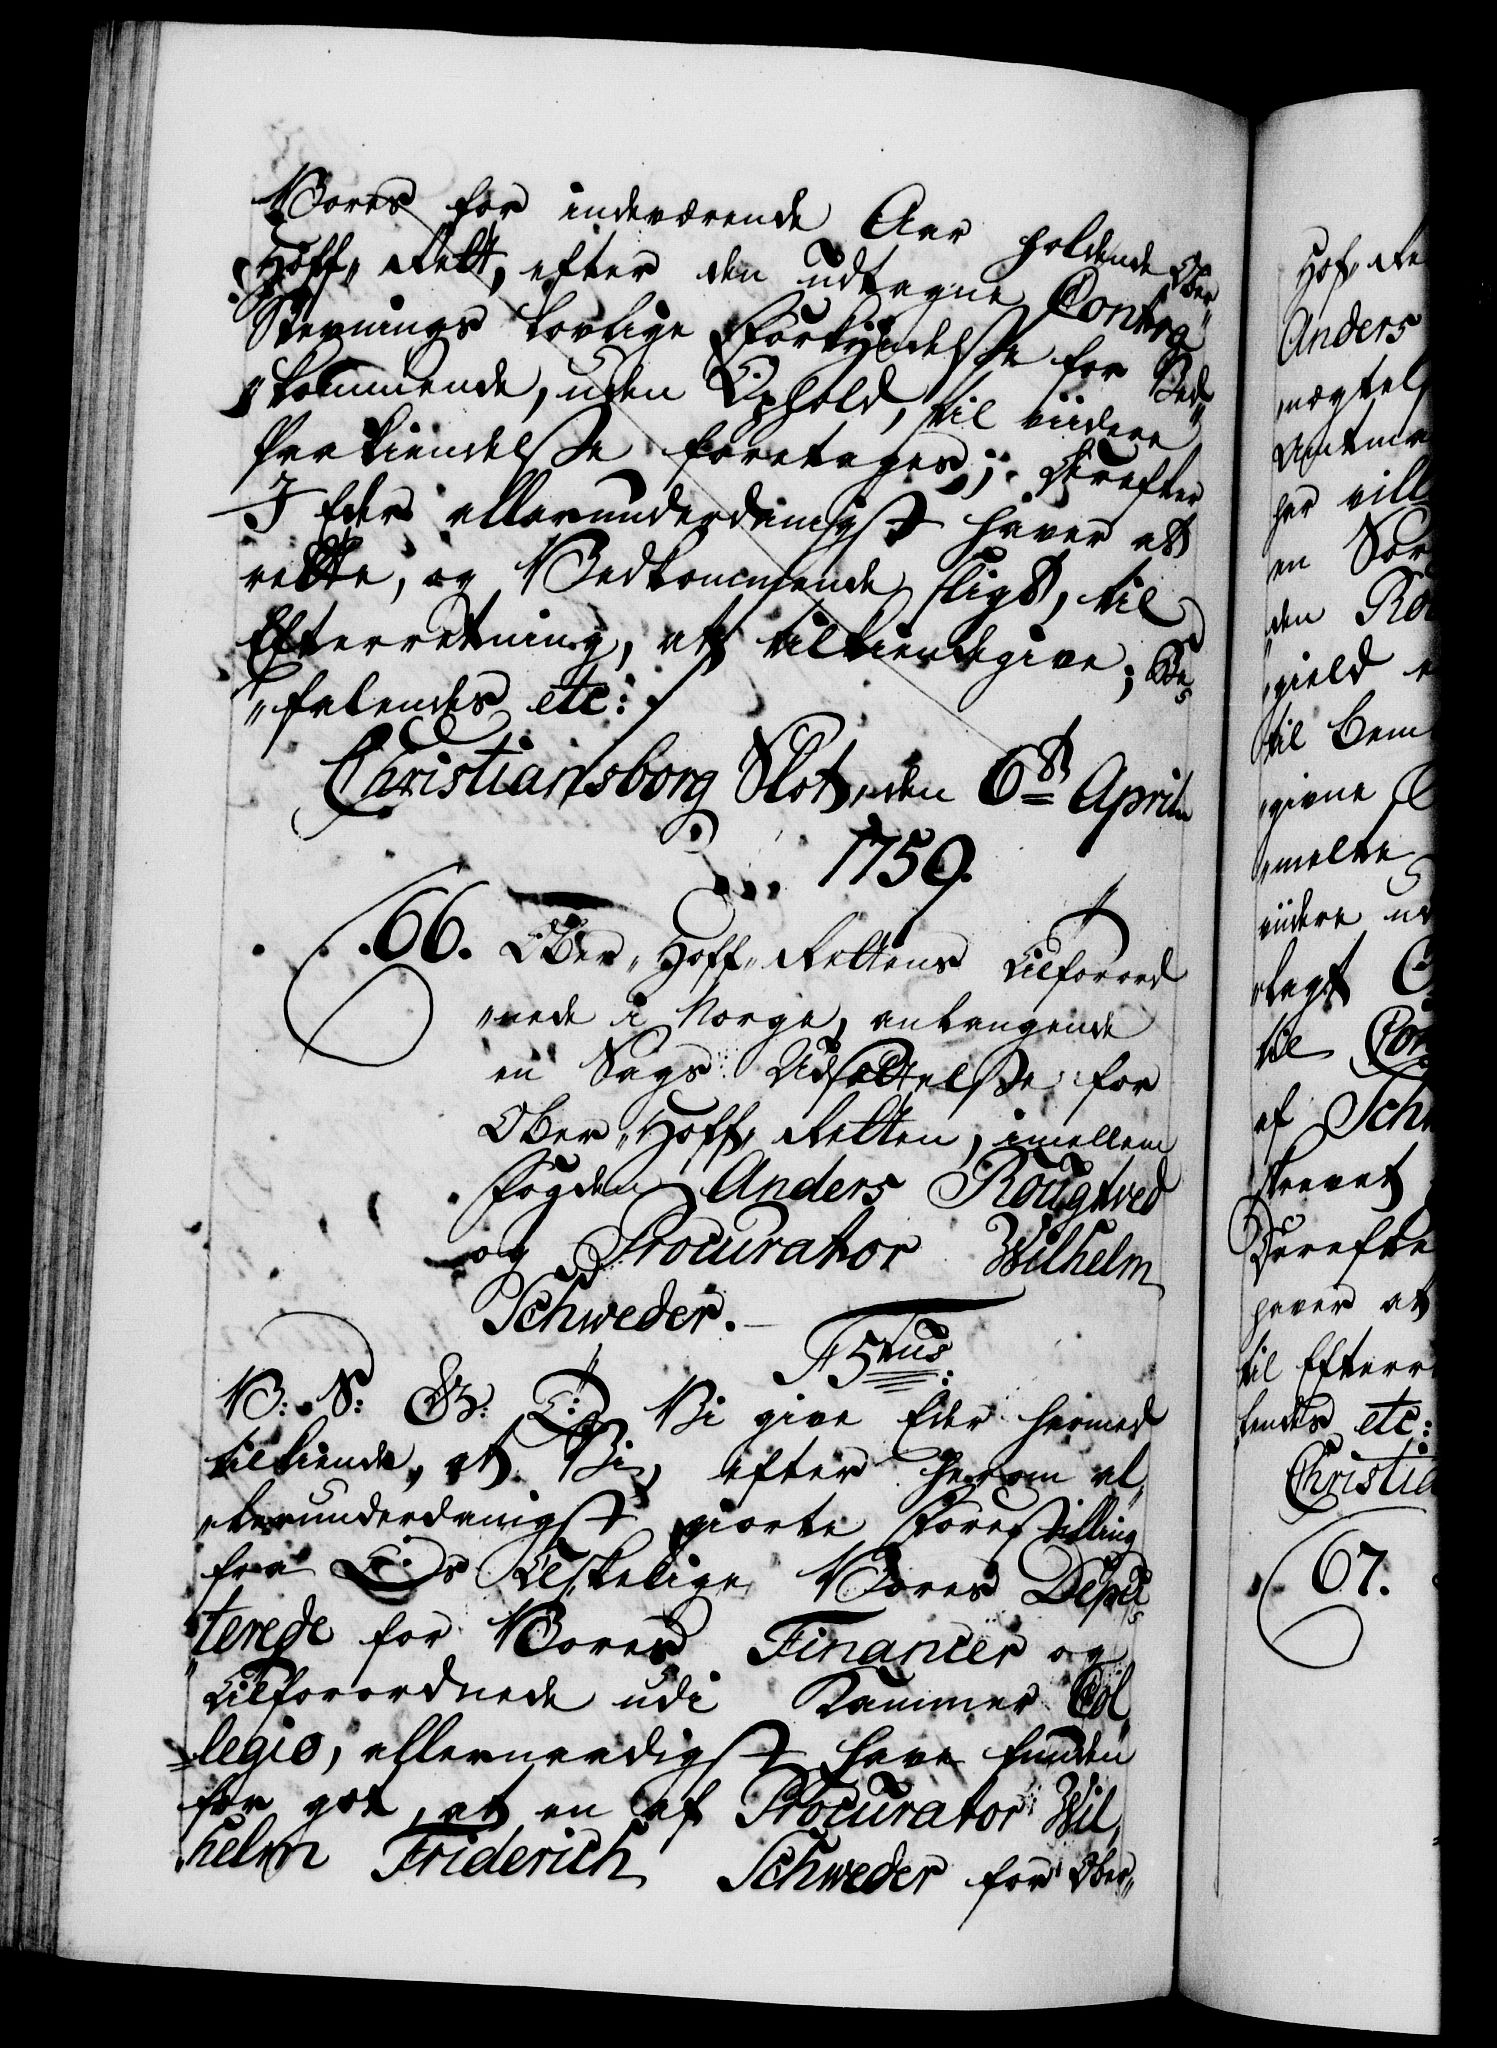 Vores for indeværende Aar holdende Ober„
Hoff„Rett, efter den udtagne Contra
Stevnings lovlige Forkyndelsse for Ved„
„kommende, uden Ophold, til viidere
Paakiendelsse foretages; Derefter
I Eder allerunderdanigst haver at
rette, og Vedkommende sligt, til
Efterretning, at tilkiendegive; Be„
„falendes etc:
Christiansborg Slot, den 6te Aprilis
1759.
66. Ober„Hoff„Rettens Tilforord
„nede i Norge, anlangende
en Sags Udsættelsse for
Ober„Hoff„Retten, imellem
Fogden Anders Rougtved
og Procurator Wilhelm
Schweder.
F5tus:
V: S: G: T: Vi give Eder hermed
tilkiende, at Vi, efter herom al„
„lerunderdanigst giorte Forestilling
fra Os Elskelige Vores Depu„
„terede for Vores Financer og
Tilforordnede udi Kammer Col„
„legio, allernaadigst have funden
for got, at en af Procurator Wil„
„helm Friderich Schweder for Ober„
Hof„Re
Anders
„mægtels
Amtma
har vill
en Sor
den Ro
„gield
til bem
„givne
„melte
viidere
„tagt
til Con
af Schw
„krevet
Derefte
haver at
til Efterr
„lendes etc:
Christia
67.